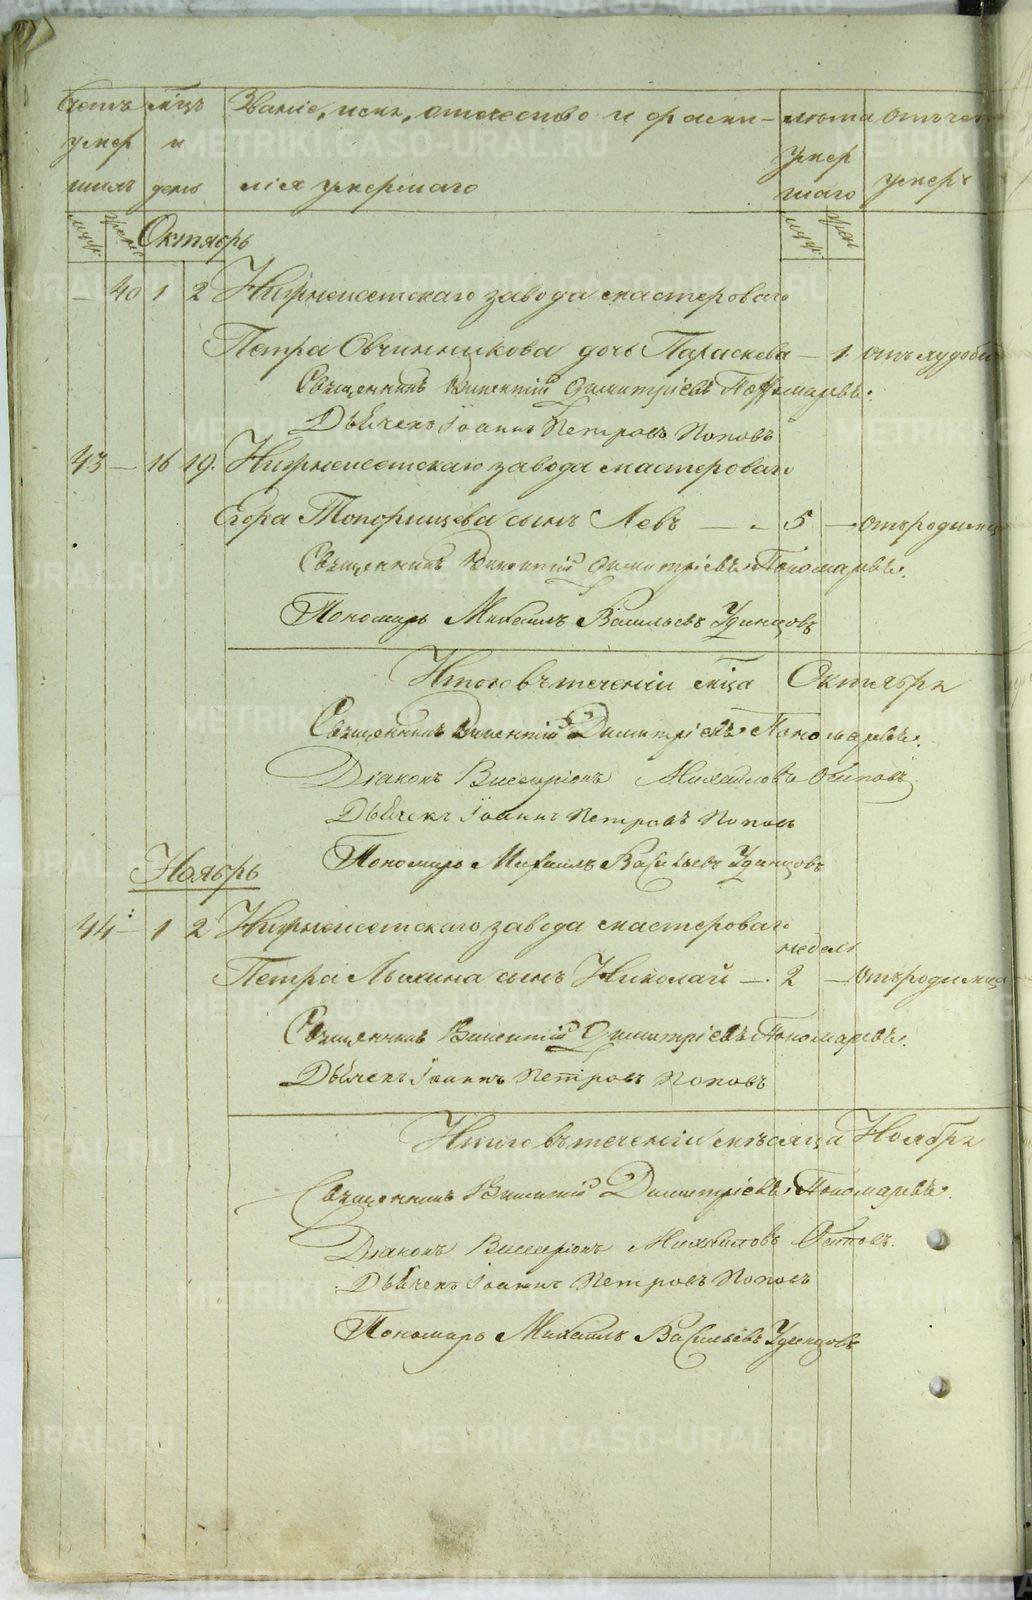 Счетъ мѣцъ Званіе, имя, отчество и фами- лѣта отъ чего
умер и умер
шихъ день лія умершаго шаго умеръ
муж. жен. Октябрь муж. жен.
— 40 1 2 Нижнеисетскаго завода мастероваго
Петра Овчинникова дочь Параскева — 1 отъ худоби
Священникъ Викентій Димитріевъ Пономаревъ.
Дьячекъ Іоаннъ Петровъ Поповъ
43 — 16 19. Нижнеисетскаго завода мастероваго
Егора Топорищева сынъ Левъ — 5 — отъ родимца
Священникъ Викентій Димитріевъ Пономаревъ.
Пономарь Михаилъ Васильевъ Удинцовъ
Итого въ теченіи мѣца Октября
Священникъ Викентій Димитріевъ Пономаревъ.
Діаконъ Виссаріонъ Михайловъ Осиповъ
Дьячекъ Іоаннъ Петровъ Поповъ
Пономарь Михаилъ Васильевъ Удинцовъ
Ноябрь
44 — 1 2 Нижнеисетскаго завода мастероваго
недель
Петра сынъ Николай — 2 — отъ родимца
Священникъ Викентій Димитріевъ Пономаревъ.
Дьячекъ Іоаннъ Петровъ Поповъ
Итого въ теченіи мѣсяца Ноября
Священникъ Викентій Димитріевъ Пономаревъ.
Діаконъ Виссаріонъ Михайловъ Осиповъ.
Дьячекъ Іоаннъ Петровъ Поповъ
Пономарь Михаилъ Васильевъ Удинцовъ
METRIKI.GASO-URAL.RU